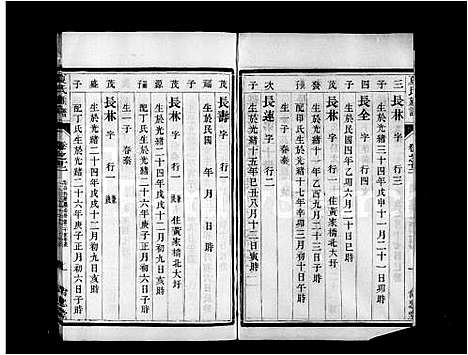 三 長林 字 行三
子 生於光緒三十四年戊申十一月二十一日寅時
四 長全 字 行四
長林 字 行一 住黃家橋北大圩
生於光緒十一年乙酉九月八日辰時
配印氏生於光緒十七年辛卯六月初三日午時
次 長蓮 字 行二
子 生於光緒十五年己丑八月十三日寅時
茂 長壽 字 行一
福 生於民國 年 月 日 時
子
茂 長林 字 行一 住黃家橋北大圩
源 生於光緒二十四年戊戌十二月初九日亥時
子 配丁氏生於光緒二十六年庚子正月初六日子時
生一子 春泰
茂 長林 字 行一
盛 生於光緒二十四年戊戌十二月初九日亥時
子 配丁氏生於光緒二十六年庚子正月初六日子時
生一子 春泰
卷之三